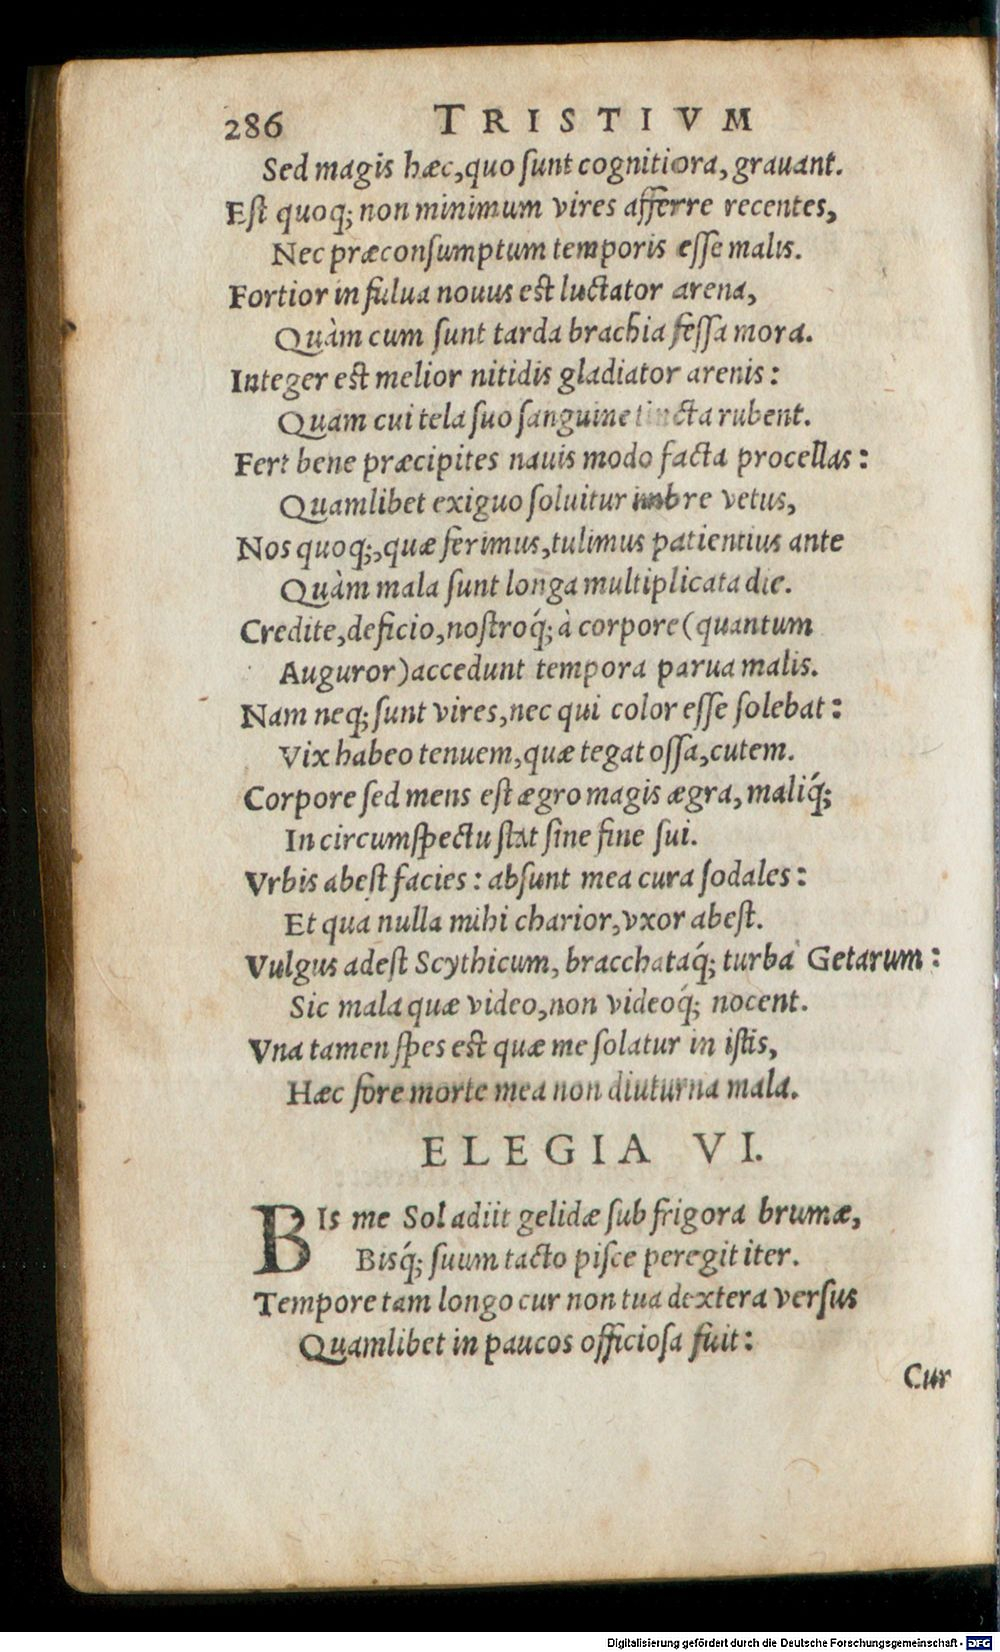 286 TRISTIVM
Sed magis hæc, quo ſunt cognitiora, grauant.
Eſt quoq; non minimum vires afferre recentes,
Nec præconſumptum temporis eſſe malis.
Fortior in fulua nouus eſt luctator arena,
Quàm cum ſunt tarda brachia feſſa mora.
Integer eſt melior nitidis gladiator arenis:
Quam cui tela ſuo ſanguine tincta rubent.
Fert bene præcipites nauis modo facta procellas:
Quamlibet exiguo ſoluitur imbre vetus,
Nos quoq;, quæ ferimus, tulimus patientius ante
Quàm mala ſunt longa multiplicata die.
Credite, deficio, noſtroq́; à corpore (quantum
Auguror) accedunt tempora parua malis.
Nam neq; ſunt vires, nec qui color eſſe ſolebat:
Vix habeo tenuem, quæ tegat oſſa, cutem.
Corpore ſed mens eſt ægro magis ægra, maliq́;
In circumſpectu ſtat ſine fine ſui.
Vrbis abeſt facies: abſunt mea cura ſodales:
Et qua nulla mihi charior, vxor abeſt.
Vulgus adeſt Scythicum, bracchataq́; turba Getarum:
Sic mala quæ video, non videoq́; nocent.
Vna tamen ſpes eſt quæ me ſolatur in iſtis,
Hæc fore morte mea non diuturna mala.
ELEGIA VI.
BIs me Sol adiit gelidæ ſub frigora brumæ,
Bisq́; ſuum tacto piſce peregit iter.
Tempore tam longo cur non tua dextera verſus
Quamlibet in paucos officioſa fuit:
Cur
Digitalisierung gefördert durch die Deutsche Forschungsgemeinschaft - DFG